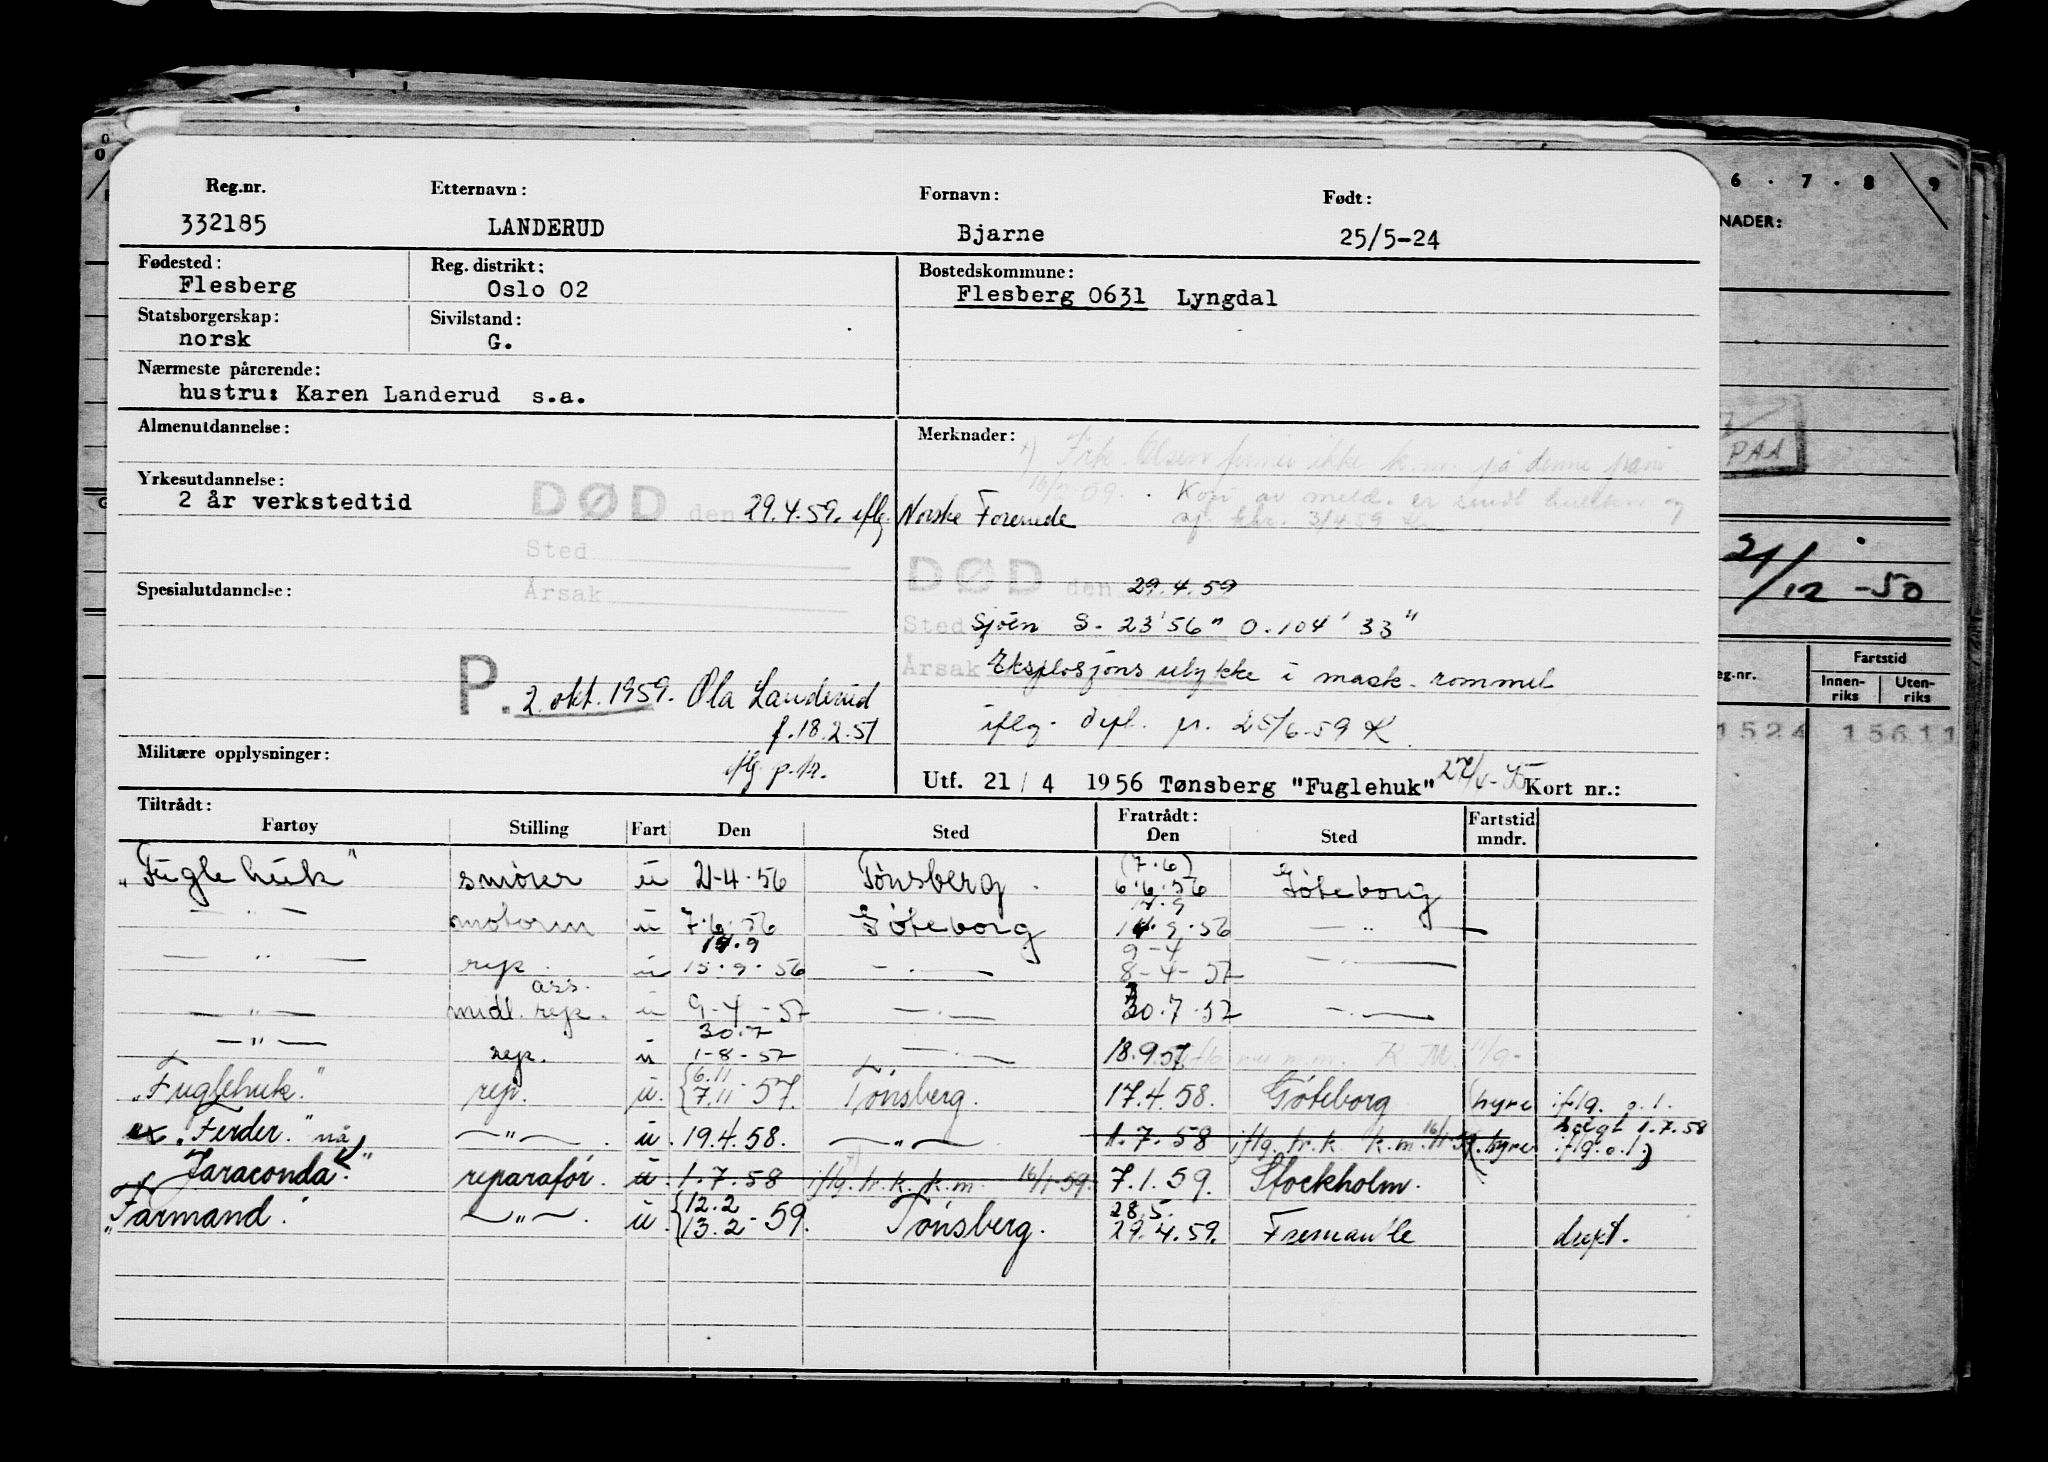 Reg.nr. Etternavn: Fornavn: Født:
332185 LANDERUD Bjarne 25/5-24
Fødested: Reg. distrikt: Bostedskommune:
Flesberg Oslo 02 Flesberg 0631 Lyngdal
Statsborgerskap: Sivilstand:
norsk G.
Nærmeste pårørende:
hustru: Karen Landerud s.a.
Almenutdannelse: Merknader:
Yrkesutdannelse:
2 år verkstedtid
DØD den 29.4.59. iflg. Norske Forenede
Sted
Årsak
DØD den 29.4.59
Sted Sjøen S. 23'56" O. 104' 33"
Årsak Eksplosjons ulykke i mask. rommet
iflg. depl. pr. 25/6-59 K
Spesialutdannelse:
P. 2. okt. 1959. Ola Landerud
f. 18.2.51
iflg. p.k.
Militære opplysninger:
Utf. 21/4 1956 Tønsberg "Fuglehuk" Kort nr.:
Tiltrådt: Fratrådt: Fartstid
Fartøy Stilling Fart Den Sted Den Sted mndr.
"Fuglehuk" smører u 21-4-56 Tønsberg. (7.6) 6.6.56 Göteborg
— " — motorm u 7.6.56 Göteborg 17.9 14.9.56 — " —
— " — rep. u 17.9 15.9.56 — " — 9-4 8-4-57 — " —
— " — midl. ass. rep. u 9-4-57 — " — 30.7.57 — " —
— " — rep. u 30.7 1-8-57 — " — 18.9.57
"Fuglehuk." rep. u. {6.11 7.11-57. Tønsberg. 17.4.58. Göteborg (hyre iflg. o.l.
ex "Ferder." nå — " — . u. 19.4.58. — " — 1.7.58 iflg. tr.k. k.m. 16/1-59 (hyre iflg. o.l.) solgt 1.7.58
"Jaraconda." reparatør. u. 1.7.58 iflg. tr.k. k.m. 16/1-59. 7.1.59. Stockholm.
"Farmand." — " — . u. {12.2 13.2-59. Tønsberg. 28.5. 29.4.59. Fremantle
6 . 7 . 8 9
NADER:
PAA
21/12-50
eg.nr. Fartstid
Innen-riks Uten-riks
1524 15611